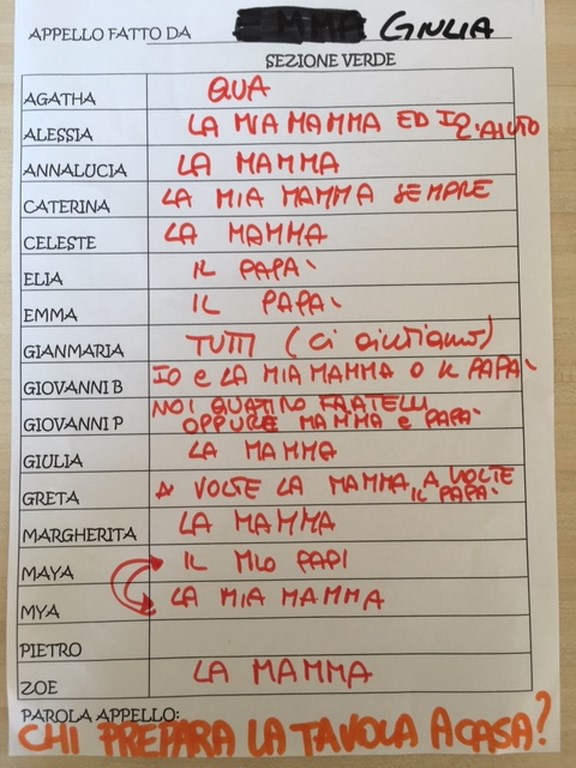 APPELLO FATTO DA EMMA GIULIA
SEZIONE VERDE
AGATHA QUA
ALESSIA LA MIA MAMMA ED IO. AIUTO
ANNALUCIA LA MAMMA
CATERINA LA MIA MAMMA SEMPRE
CELESTE LA MAMMA
ELIA IL PAPA'
EMMA IL PAPA'
GIANMARIA TUTTI (Ci aiutiamo)
GIOVANNI B IO e LA MIA MAMMA O IL PAPA'
GIOVANNI P NOI QUATTRO FRATELLI
OPPURE MAMMA e PAPA'
GIULIA LA MAMMA
GRETA A VOLTE LA MAMMA, A VOLTE
IL PAPA'
MARGHERITA LA MAMMA
MAYA IL MIO PAPI
MYA LA MIA MAMMA
PIETRO
ZOE LA MAMMA
PAROLA APPELLO:
CHI PREPARA LA TAVOLA A CASA?